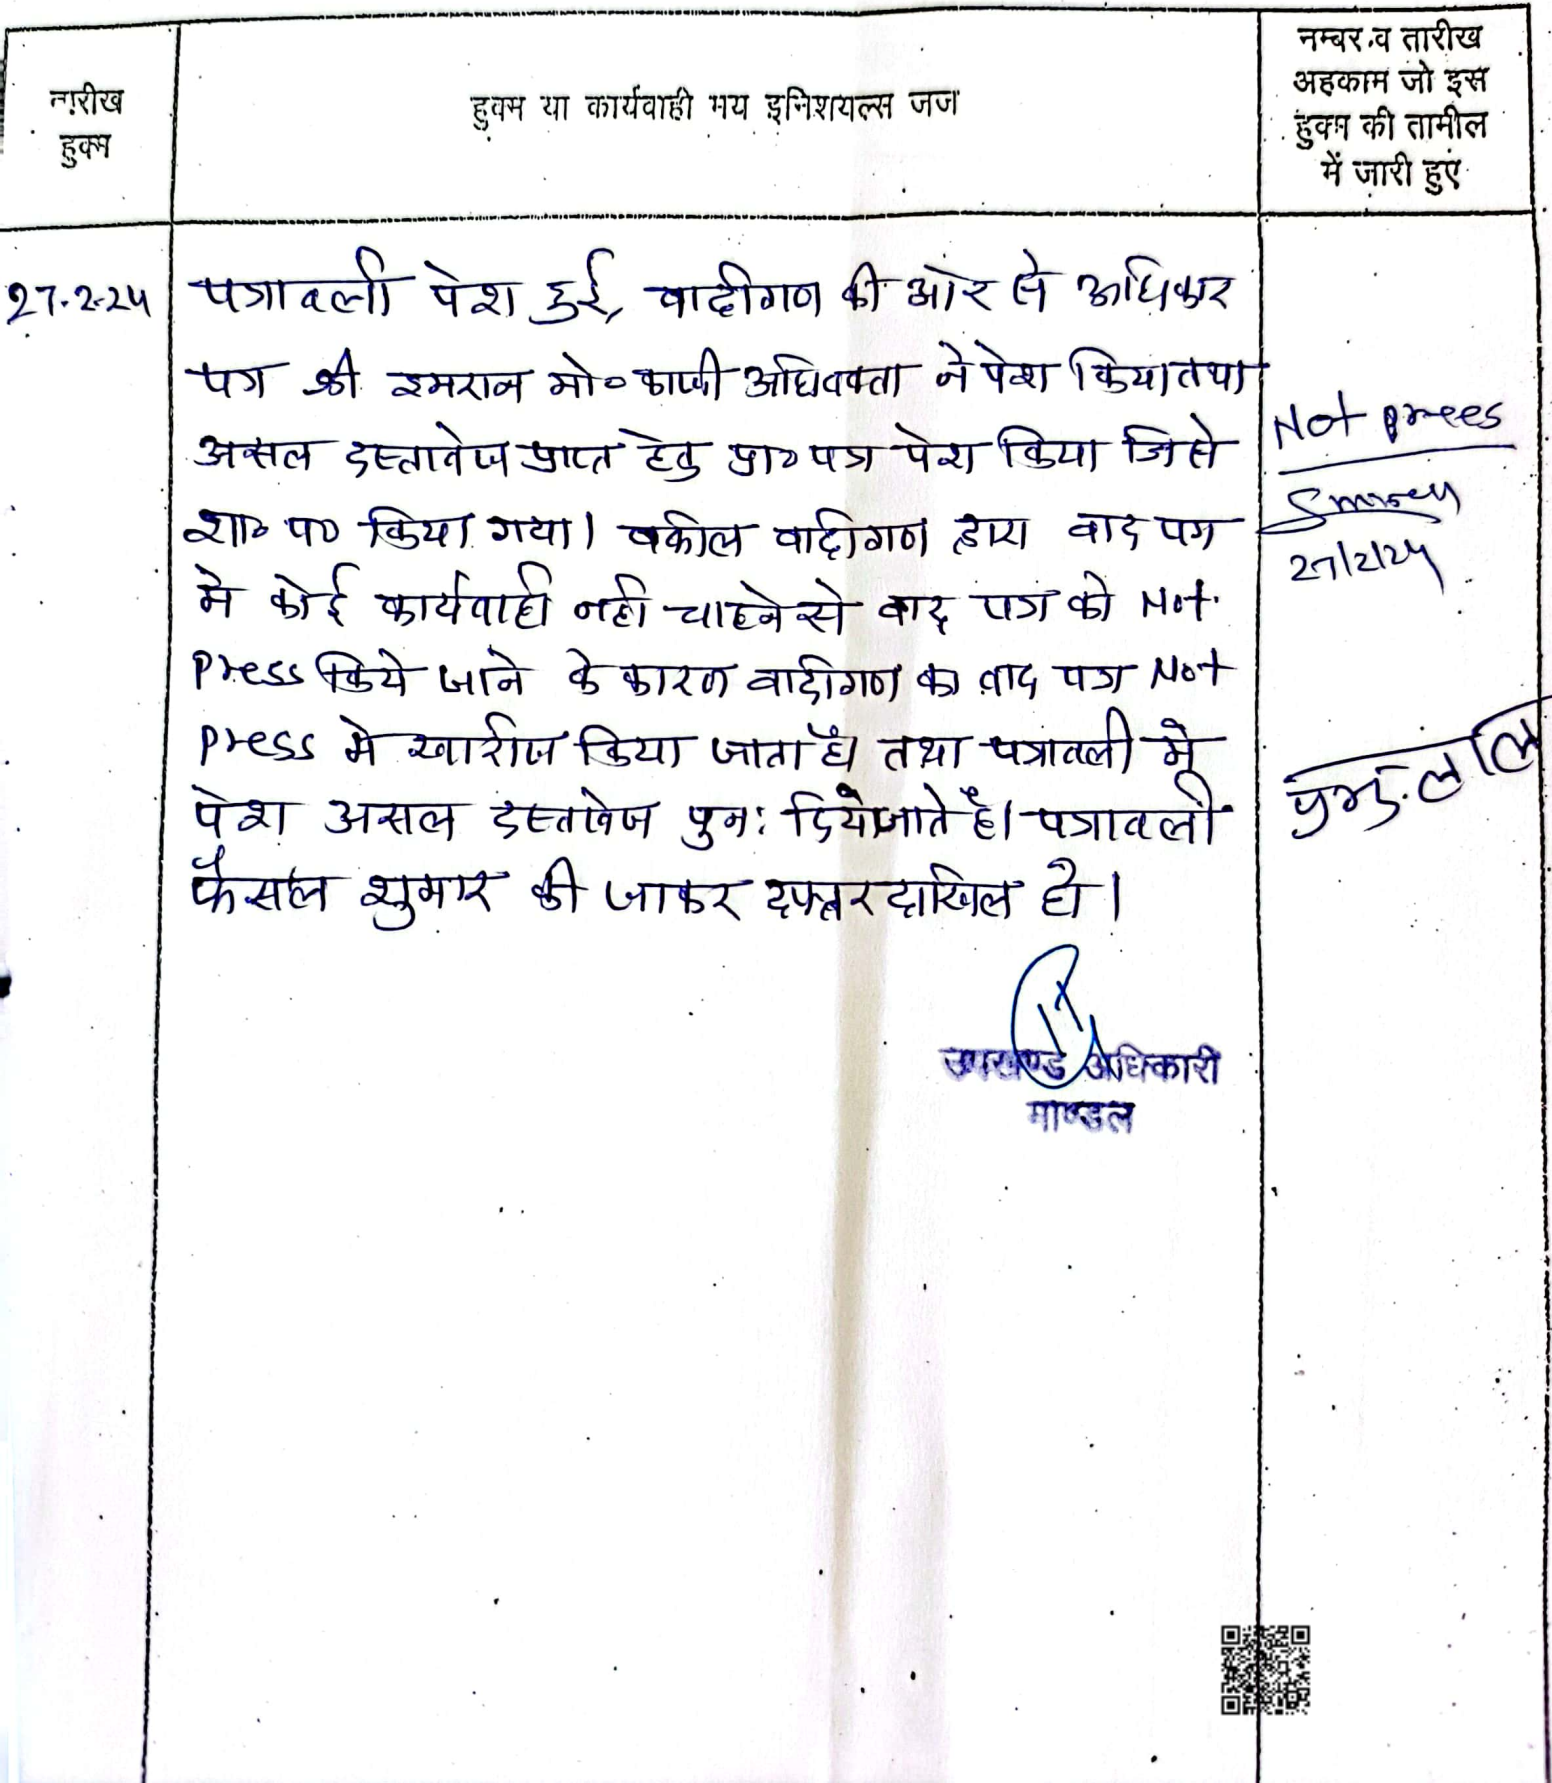 तारीख
हुक्म
हुक्म या कार्यवाही मय इनिशियल्स जज
नम्बर व तारीख
अहकाम जो इस
हुक्म की तामील
में जारी हुए
27-2-24
पत्रावली पेश हुई, वादीगण की ओर से अधिकार
पत्र श्री इमरान मो० काजी अधिवक्ता ने पेश किया तथा
असल दस्तावेज प्राप्त हेतु प्रा० पत्र पेश किया जिसे
शा० प० किया गया। वकील वादीगण द्वारा वाद पत्र
मे कोई कार्यवाही नही चाहने से वाद पत्र को Not
Press किये जाने के कारण वादीगण का वाद पत्र Not
Press मे खारीज किया जाता है। तथा पत्रावली मे
पेश असल दस्तावेज पुनः दिये जाते है। पत्रावली
फैसल शुमार की जाकर दफ्तर दाखिल हो।
Not prees
27/2/24
उपखण्ड अधिकारी
माण्डल